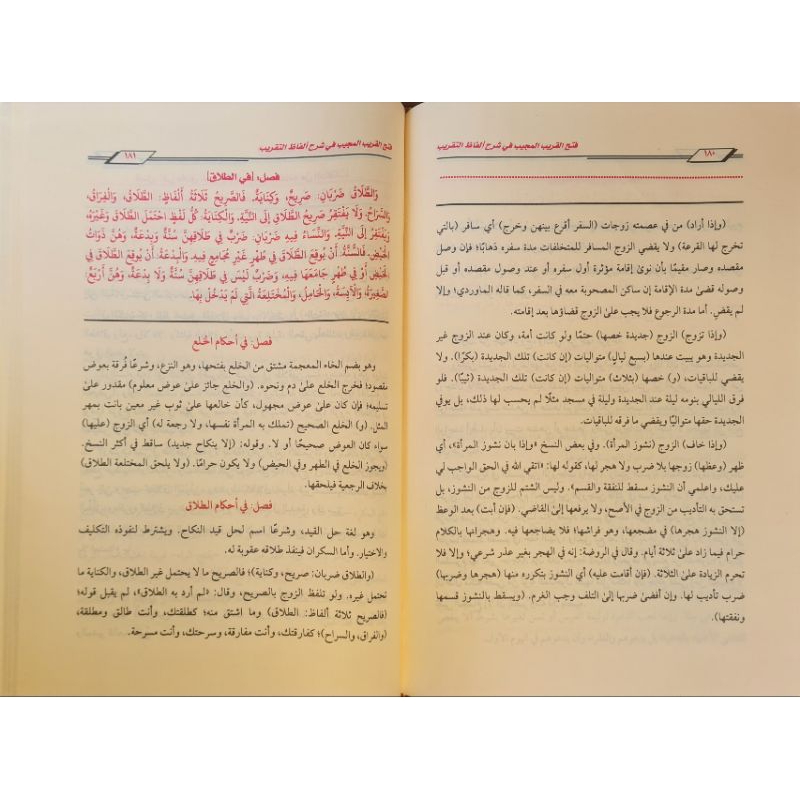 فتح القريب المجيب في شرح ألفاظ التقريب
١٨٠
(وإذا أراد) من في عصمته زوجات (السفر أقرع بينهن وخرج) أي سافر (بالتي
تخرج لها القرعة) ولا يقضي الزوج المسافر للمتخلفات مدة سفره ذهابًا؛ فإن وصل
مقصده وصار مقيمًا بأن نوى إقامة مؤثرة أول سفره أو عند وصول مقصده أو قبل
وصوله قضى مدة الإقامة إن ساكن المصحوبة معه في السفر، كما قاله الماوردي؛ وإلا
لم يقض. أما مدة الرجوع فلا يجب على الزوج قضاؤها بعد إقامته.
(وإذا تزوج) الزوج (جديدة خصها) حتمًا ولو كانت أمة، وكان عند الزوج غير
الجديدة وهو يبيت عندها (بسبع ليالٍ) متواليات (إن كانت) تلك الجديدة (بكرًا). ولا
يقضي للباقيات، (و) خصها (بثلاث) متواليات (إن كانت) تلك الجديدة (ثيبًا). فلو
فرق الليالي بنومه ليلة عند الجديدة وليلة في مسجد مثلًا لم يحسب لها ذلك، بل يوفي
الجديدة حقها متواليًا ويقضي ما فرقه للباقيات.
(وإذا خاف) الزوج (نشوز المرأة). وفي بعض النسخ «وإذا بان نشوز المرأة»، أي
ظهر (وعظها) زوجها بلا ضرب ولا هجر لها، كقوله لها: «اتقي الله في الحق الواجب لي
عليك، واعلمي أن النشوز مسقط للنفقة والقسم». وليس الشتم للزوج من النشوز، بل
تستحق به التأديب من الزوج في الأصح، ولا يرفعها إلى القاضي. (فإن أبت) بعد الوعظ
(إلا النشوز هجرها) في مضجعها، وهو فراشها؛ فلا يضاجعها فيه. وهجرانها بالكلام
حرام فيما زاد على ثلاثة أيام. وقال في الروضة: إنه في الهجر بغير عذر شرعي؛ وإلا فلا
تحرم الزيادة على الثلاثة. (فإن أقامت عليه) أي النشوز بتكرره منها (هجرها وضربها)
ضرب تأديب لها. وإن أفضى ضربها إلى التلف وجب الغرم. (ويسقط بالنشوز قسمها
ونفقتها).
فتح القريب المجيب في شرح ألفاظ التقريب
١٨١
فصل: [في الطلاق]
وَالطَّلَاقُ ضَرْبَانِ: صَرِيحٌ، وَكِنَايَةٌ. فَالصَّرِيحُ ثَلَاثَةُ أَلْفَاظٍ: الطَّلَاقُ، وَالْفِرَاقُ،
وَالسَّرَاحُ. وَلَا يَفْتَقِرُ صَرِيحُ الطَّلَاقِ إِلَى النِّيَّةِ. وَالْكِنَايَةُ: كُلُّ لَفْظٍ احْتَمَلَ الطَّلَاقَ وَغَيْرَهُ،
وَيَفْتَقِرُ إِلَى النِّيَّةِ. وَالنِّسَاءُ فِيهِ ضَرْبَانِ: ضَرْبٌ فِي طَلَاقِهِنَّ سُنَّةٌ وَبِدْعَةٌ، وَهُنَّ ذَوَاتُ
الْحَيْضِ. فَالسُّنَّةُ: أَنْ يُوقِعَ الطَّلَاقَ فِي طُهْرٍ غَيْرِ مُجَامِعٍ فِيهِ، وَالْبِدْعَةُ: أَنْ يُوقِعَ الطَّلَاقَ فِي
الْحَيْضِ أَوْ فِي طُهْرٍ جَامَعَهَا فِيهِ، وَضَرْبٌ لَيْسَ فِي طَلَاقِهِنَّ سُنَّةٌ وَلَا بِدْعَةٌ، وَهُنَّ أَرْبَعٌ:
الصَّغِيرَةُ، وَالْآيِسَةُ، وَالْحَامِلُ، وَالْمُخْتَلِعَةُ الَّتِي لَمْ يَدْخُلْ بِهَا.
فصل: في أحكام الخلع
وهو بضم الخاء المعجمة مشتق من الخلع بفتحها، وهو النزع، وشرعًا فُرقة بعوض
مقصود؛ فخرج الخلع على دم ونحوه. (والخلع جائز على عوض معلوم) مقدور على
تسليمه؛ فإن كان على عوض مجهول، كأن خالعها على ثوب غير معين بانت بمهر
المثل. (و) الخلع الصحيح (تملك به المرأة نفسها، ولا رجعة له) أي الزوج (عليها)
سواء كان العوض صحيحًا أو لا. وقوله: (إلا بنكاح جديد) ساقط في أكثر النسخ.
(ويجوز الخلع في الطهر وفي الحيض) ولا يكون حرامًا. (ولا يلحق المختلعة الطلاق)
بخلاف الرجعية فيلحقها.
فصل: في أحكام الطلاق
وهو لغة حل القيد، وشرعًا اسم لحل قيد النكاح. ويشترط لنفوذه التكليف
والاختيار. وأما السكران فينفذ طلاقه عقوبة له.
(والطلاق ضربان: صريح، وكناية)؛ فالصريح ما لا يحتمل غير الطلاق، والكناية ما
تحتمل غيره. ولو تلفظ الزوج بالصريح، وقال: «لم أرد به الطلاق»، لم يقبل قوله؛
(فالصريح ثلاثة ألفاظ: الطلاق) وما اشتق منه؛ كطلقتك، وأنت طالق ومطلقة،
(والفراق، والسراح)؛ كفارقتك، وأنت مفارقة، وسرحتك، وأنت مسرحة.